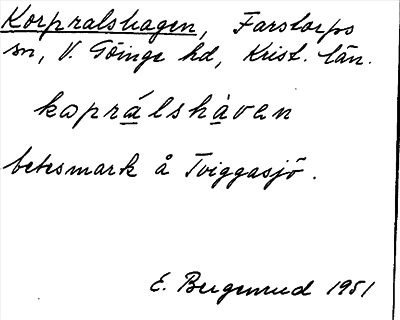 Korpralshagen, Farstorps
sn, V. Göinge hd, Krist. län.
koprálshàven
betesmark å Tviggasjö.
E. Bergenrud 1951